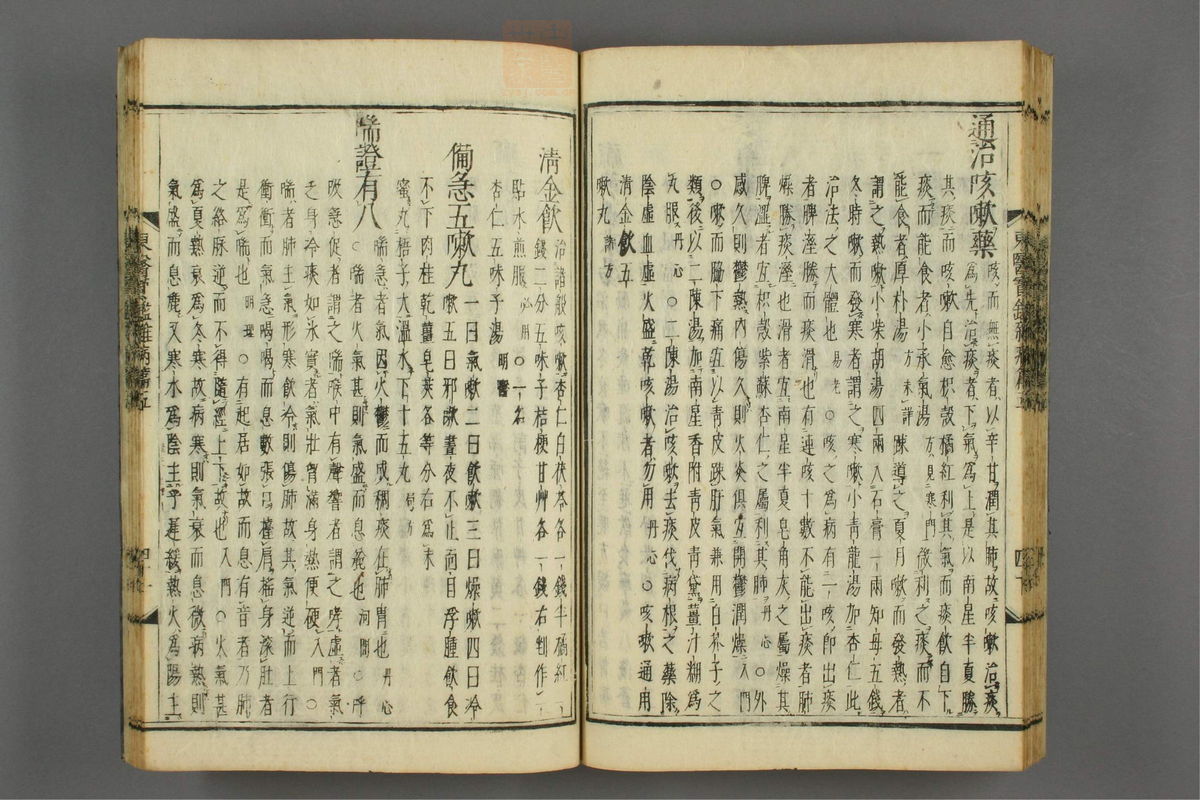 通治咳嗽藥
咳而無痰者以辛甘潤其肺故咳嗽治痰
爲先治痰者下氣爲上是以南星半夏勝
其痰而咳嗽自愈枳殼橘紅利其氣而痰飮自下
痰而能食者小承氣湯方見寒門微利之痰而不
能食者厚朴湯方未詳踈導之夏月嗽而發熱者
謂之熱嗽小柴胡湯四兩入石膏一兩知母五錢
冬時嗽而發寒者謂之寒嗽小靑龍湯加杏仁此
治法之大體也易老○咳之爲病有二一咳卽出痰
者脾濕勝而痰滑也有連咳十數不能出痰者肺
燥勝痰濕也滑者宜南星半夏皂角灰之屬燥其
脾濕者宜枳殼紫蘇杏仁之屬利其肺丹心○外
感久則鬱熱內傷久則火炎俱宜開鬱潤燥入門
○嗽而脇下痛宜以靑皮踈肝氣兼用白芥子之
類後以二陳湯加南星香附靑皮靑黛薑汁糊爲
丸服丹心○二陳湯治咳嗽去痰伐病根之藥除
陰虛血虛火盛乾咳嗽者勿用丹心○咳嗽通用
淸金飮五
嗽丸諸方
淸金飮治諸般咳嗽杏仁白茯苓各一錢半橘紅一
錢二分五味子桔梗甘艸各一錢右剉作一
貼水煎服必用○一名
杏仁五味子湯明醫
備急五嗽丸一曰氣嗽二曰飮嗽三曰燥嗽四曰冷
嗽五曰邪嗽晝夜不止面目浮腫飮食
不下肉桂乾薑皂莢各等分右爲末
蜜丸梧子大溫水下十五丸局方
喘證有八
喘急者氣因火鬱而成稠痰在肺胃也丹心
○喘者火氣甚則氣盛而息麁也河間○呼
吸急促者謂之喘喉中有聲響者謂之哮虛者氣
乏身冷痰如氷實者氣壯胷滿身熱便硬入門○
喘者肺主氣形寒飮冷則傷肺故其氣逆而上行
衝衝而氣急喝喝而息數張口擡肩搖身滾肚者
是爲喘也明理○有起居如故而息有音者乃肺
之絡脉逆而不得隨經上下故也入門○火氣甚
爲夏熱衰爲冬寒故病寒則氣衰而息微病熱則
氣盛而息麁又寒水爲陰主乎遲緩熱火爲陽主
東醫寶鑑雜病篇五
四十